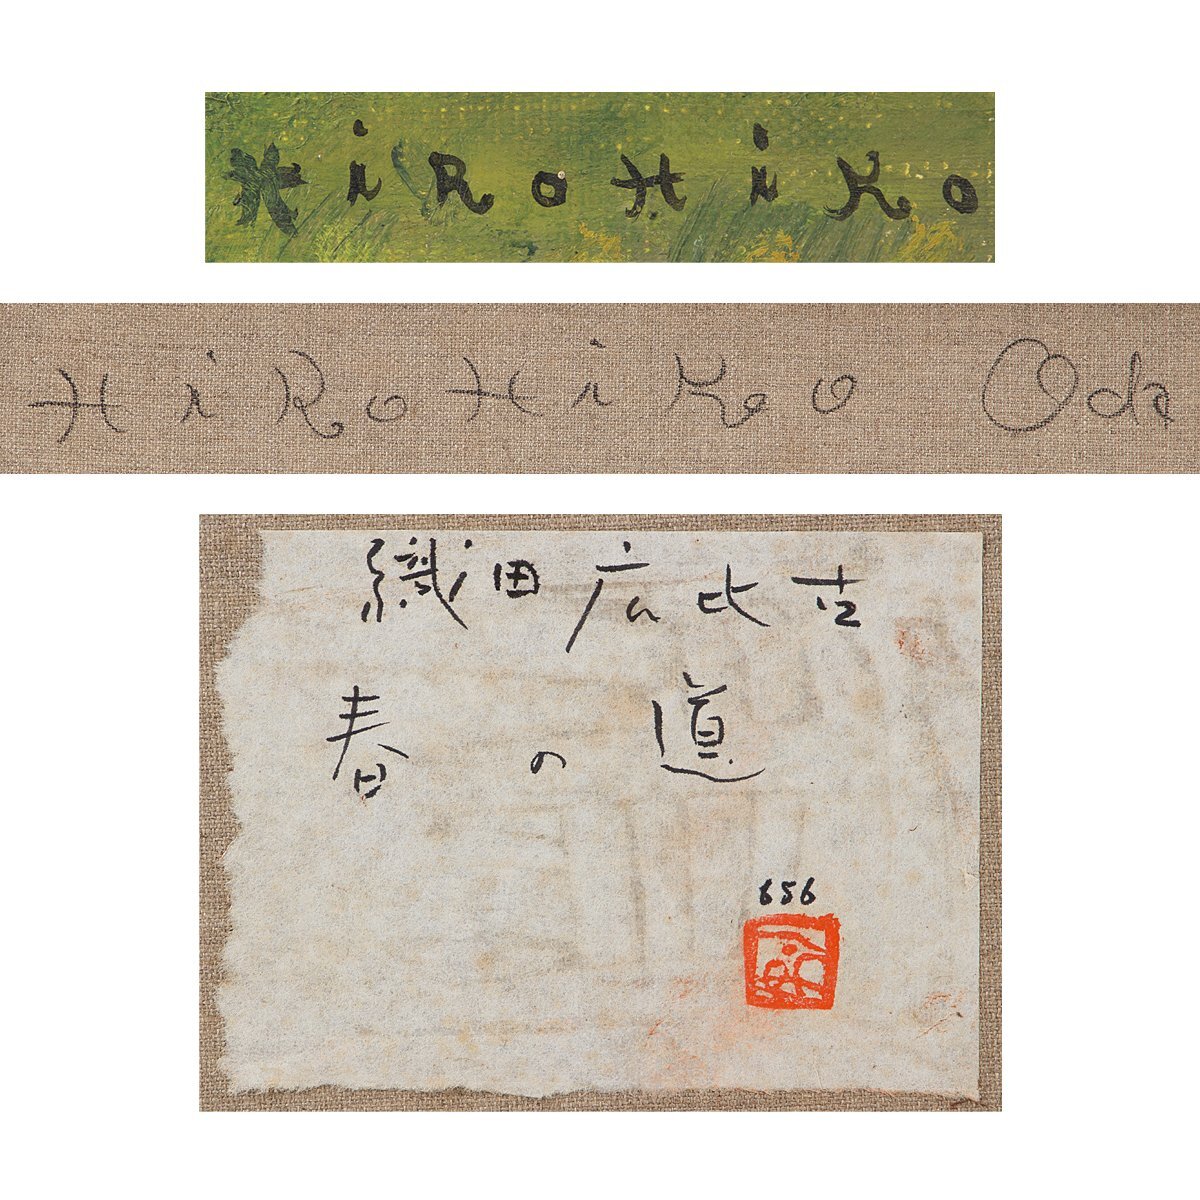 HiRoHiKo
HiRoHiKo Oda
織田広比古
春の道
656